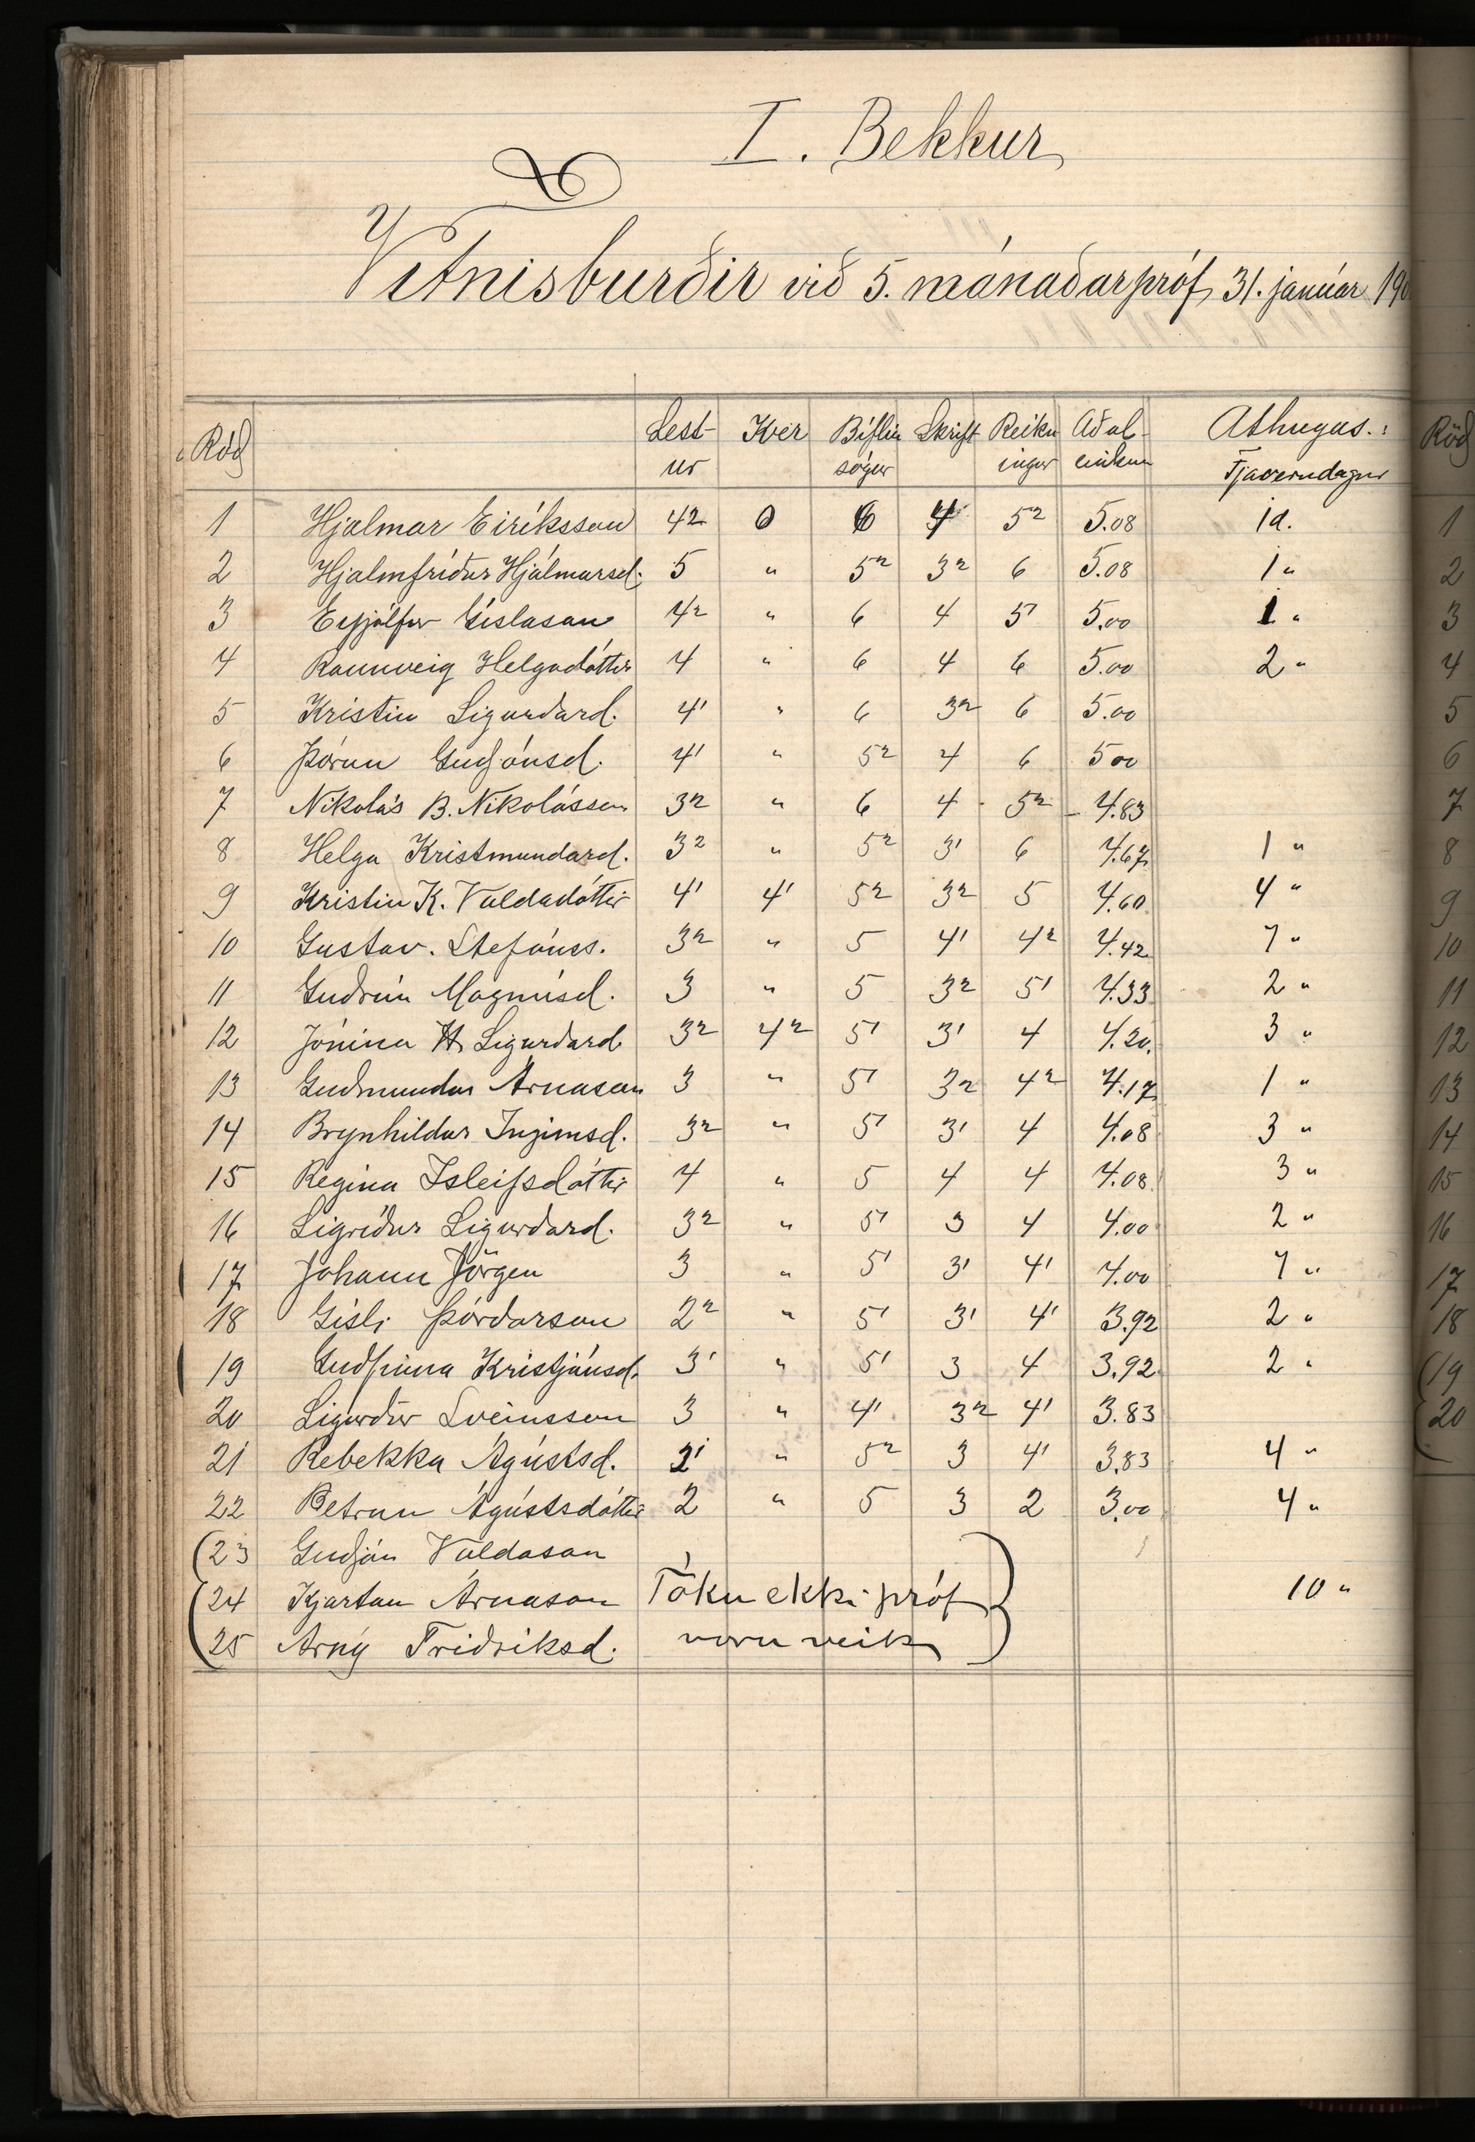 I. Bekkur
Vitnisburðir við 5. mánaðarpróf, 31. janúar 19
Röð Lest- Kver Biflíu Skrift Reikn Aðal- Athugas.:
ur sögur ingur einkun Fjaverudagur
1 Hjalmar Eiríksson 4² 0 6 4 5² 5.08 1 d.
2 Hjalmfríður Hjálmarsd. 5 " 5² 3² 6 5.08 1 "
3 Eyjólfur Gíslason 4² " 6 4 5¹ 5.00 1 "
4 Rannveig Helgadóttir 4 " 6 4 6 5.00 2 "
5 Kristín Sigurdard. 4¹ " 6 3² 6 5.00
6 Þórun Guðjónsd. 4¹ " 5² 4 6 5 00
7 Nikolás B. Nikolásson 3² " 6 4 5² 4.83
8 Helga Kristmundard. 3² " 5² 3¹ 6 4.67 1 "
9 Kristín K. Valdadóttir 4¹ 4¹ 5² 3² 5 4.60 4 "
10 Gustav. Stefánss. 3² " 5 4¹ 4² 4.42 7 "
11 Guðrún Magnúsd. 3 " 5 3² 5¹ 4.33 2 "
12 Jónína H. Sigurdard 3² 4² 5¹ 3¹ 4 4.20. 3 "
13 Guðmundur Árnason 3 " 5¹ 3² 4² 4.17 1 "
14 Brynhildur Ingimsd. 3² " 5¹ 3¹ 4 4.08 3 "
15 Regína Isleifsdóttir 4 " 5 4 4 4.08 3 "
16 Sigríður Sigurdard. 3² " 5¹ 3 4 4.00 2 "
17 Johann Jörgen 3 " 5¹ 3¹ 4¹ 4.00 7 "
18 Gísli Þórðarson 2² " 5¹ 3¹ 4¹ 3.92 2 "
19 Guðfinna Kristjánsd. 3¹ " 5¹ 3 4 3.92 2 "
20 Sigurður Sveinsson 3 " 4¹ 3² 4¹ 3.83
21 Rebekka Ágústsd. 2¹ " 5² 3 4¹ 3.83 4 "
22 Petrun Ágústsdóttir 2 " 5 3 2 3.00 4 "
23 Guðjón Valdason
24 Kjartan Árnason Tóku ekki próf 10 "
25 Arný Friðriksd. voru veik